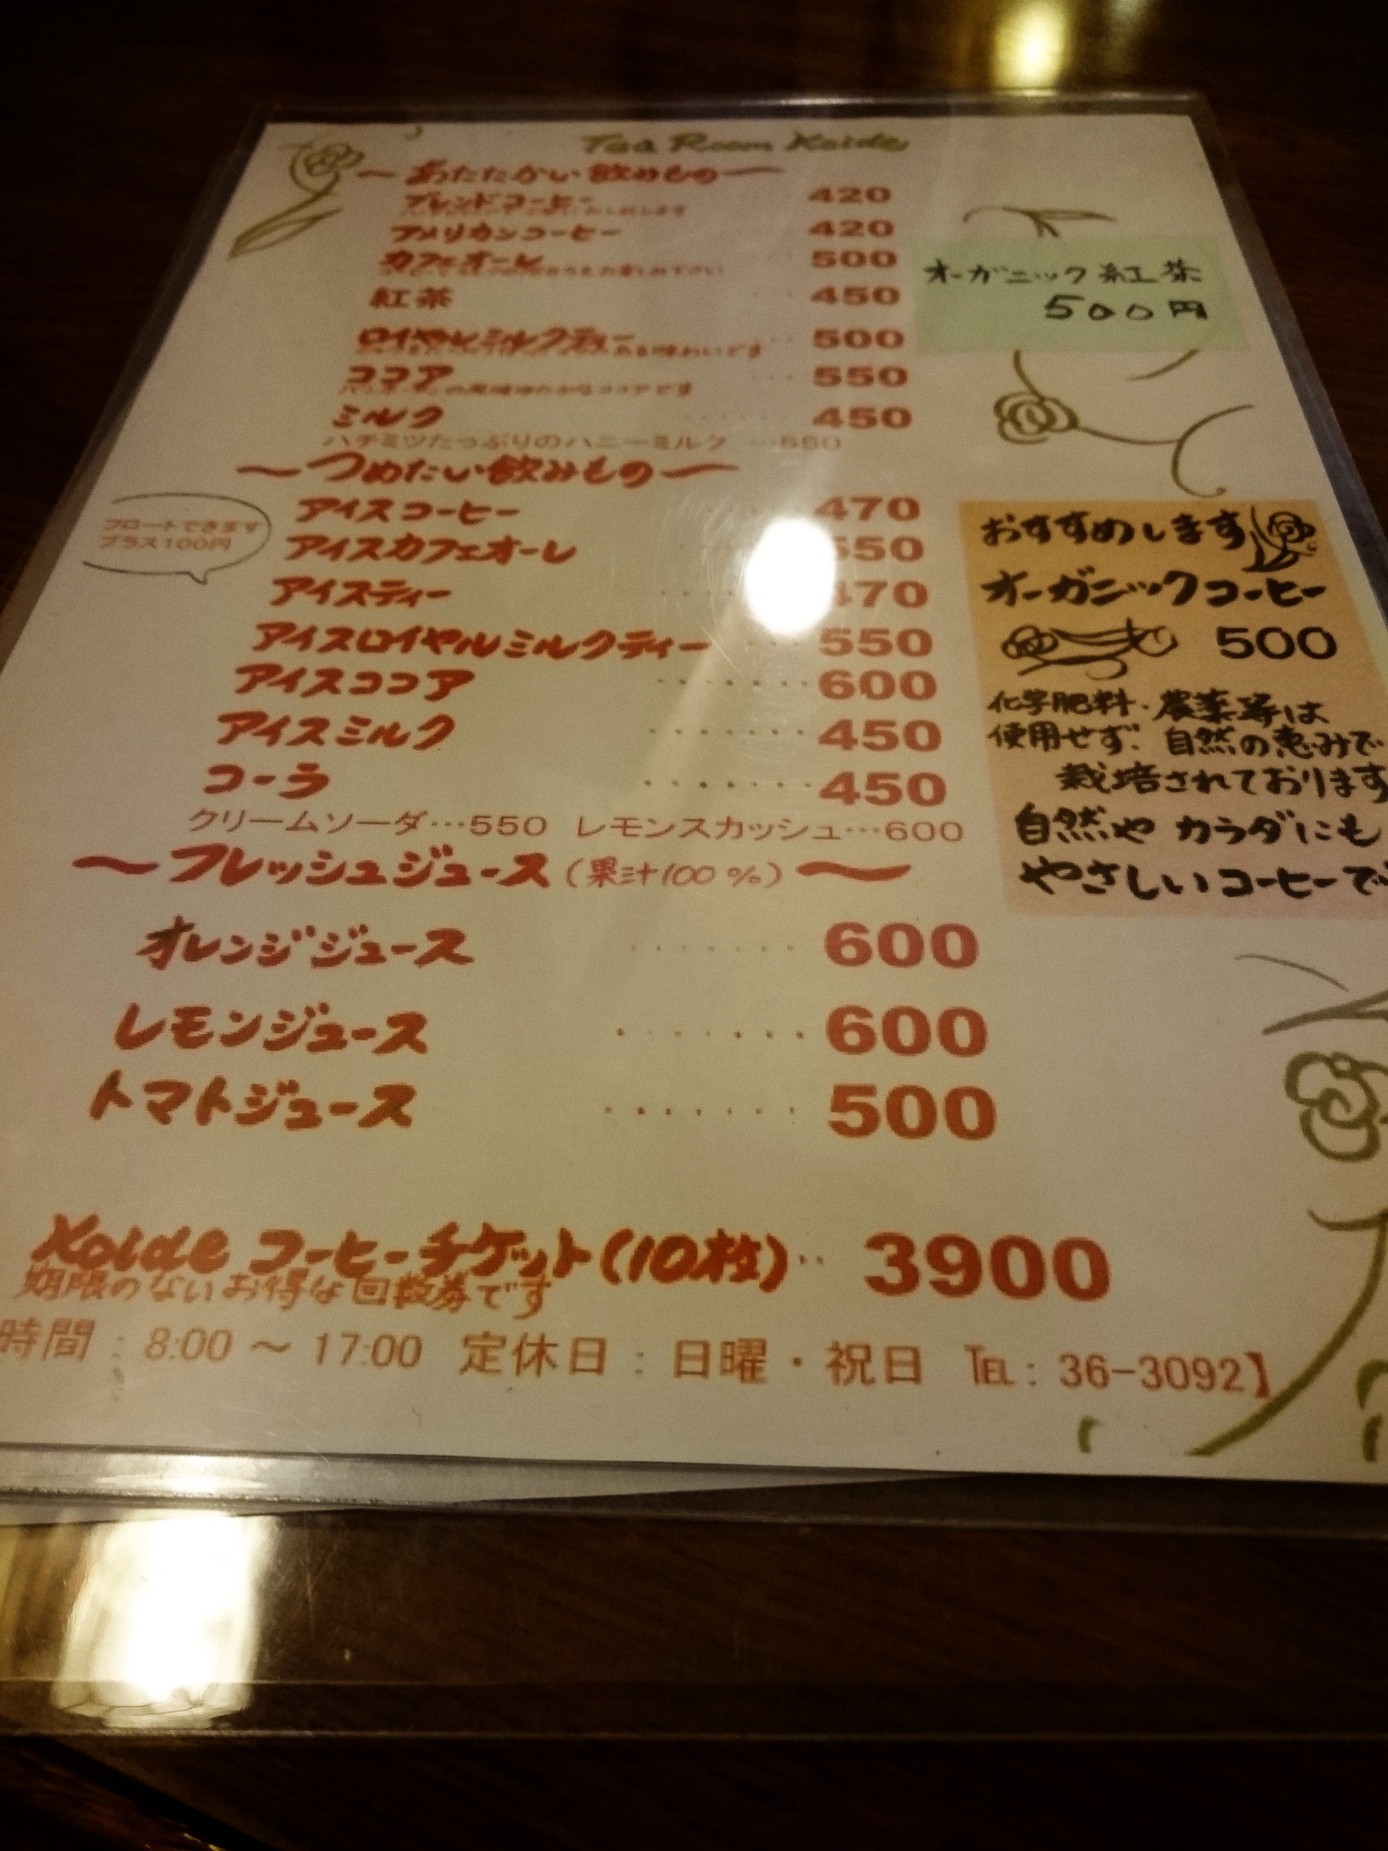 Tea Room Koide
～あたたかい飲みもの～
ブレンドコーヒー 420
アメリカンコーヒー 420
カフェオーレ 500
紅茶 450
ロイヤルミルクティー 500
ある味わいです
ココア 550
の風味ゆたかなココアです
ミルク 450
ハチミツたっぷりのハニーミルク …550
オーガニック紅茶
500円
～つめたい飲みもの～
フロートできます
プラス100円
アイスコーヒー 470
アイスカフェオーレ 550
アイスティー 470
アイスロイヤルミルクティー 550
アイスココア 600
アイスミルク 450
コーラ 450
クリームソーダ…550 レモンスカッシュ…600
おすすめします
オーガニックコーヒー
500
化学肥料・農薬等は
使用せず、自然の恵みで
栽培されております
自然や カラダにも
やさしいコーヒーで
～フレッシュジュース(果汁100%)～
オレンジジュース 600
レモンジュース 600
トマトジュース 500
Koide コーヒーチケット(10枚) 3900
期限のないお得な回数券です
時間：8:00 ～ 17:00 定休日：日曜・祝日 TEL：36-3092】